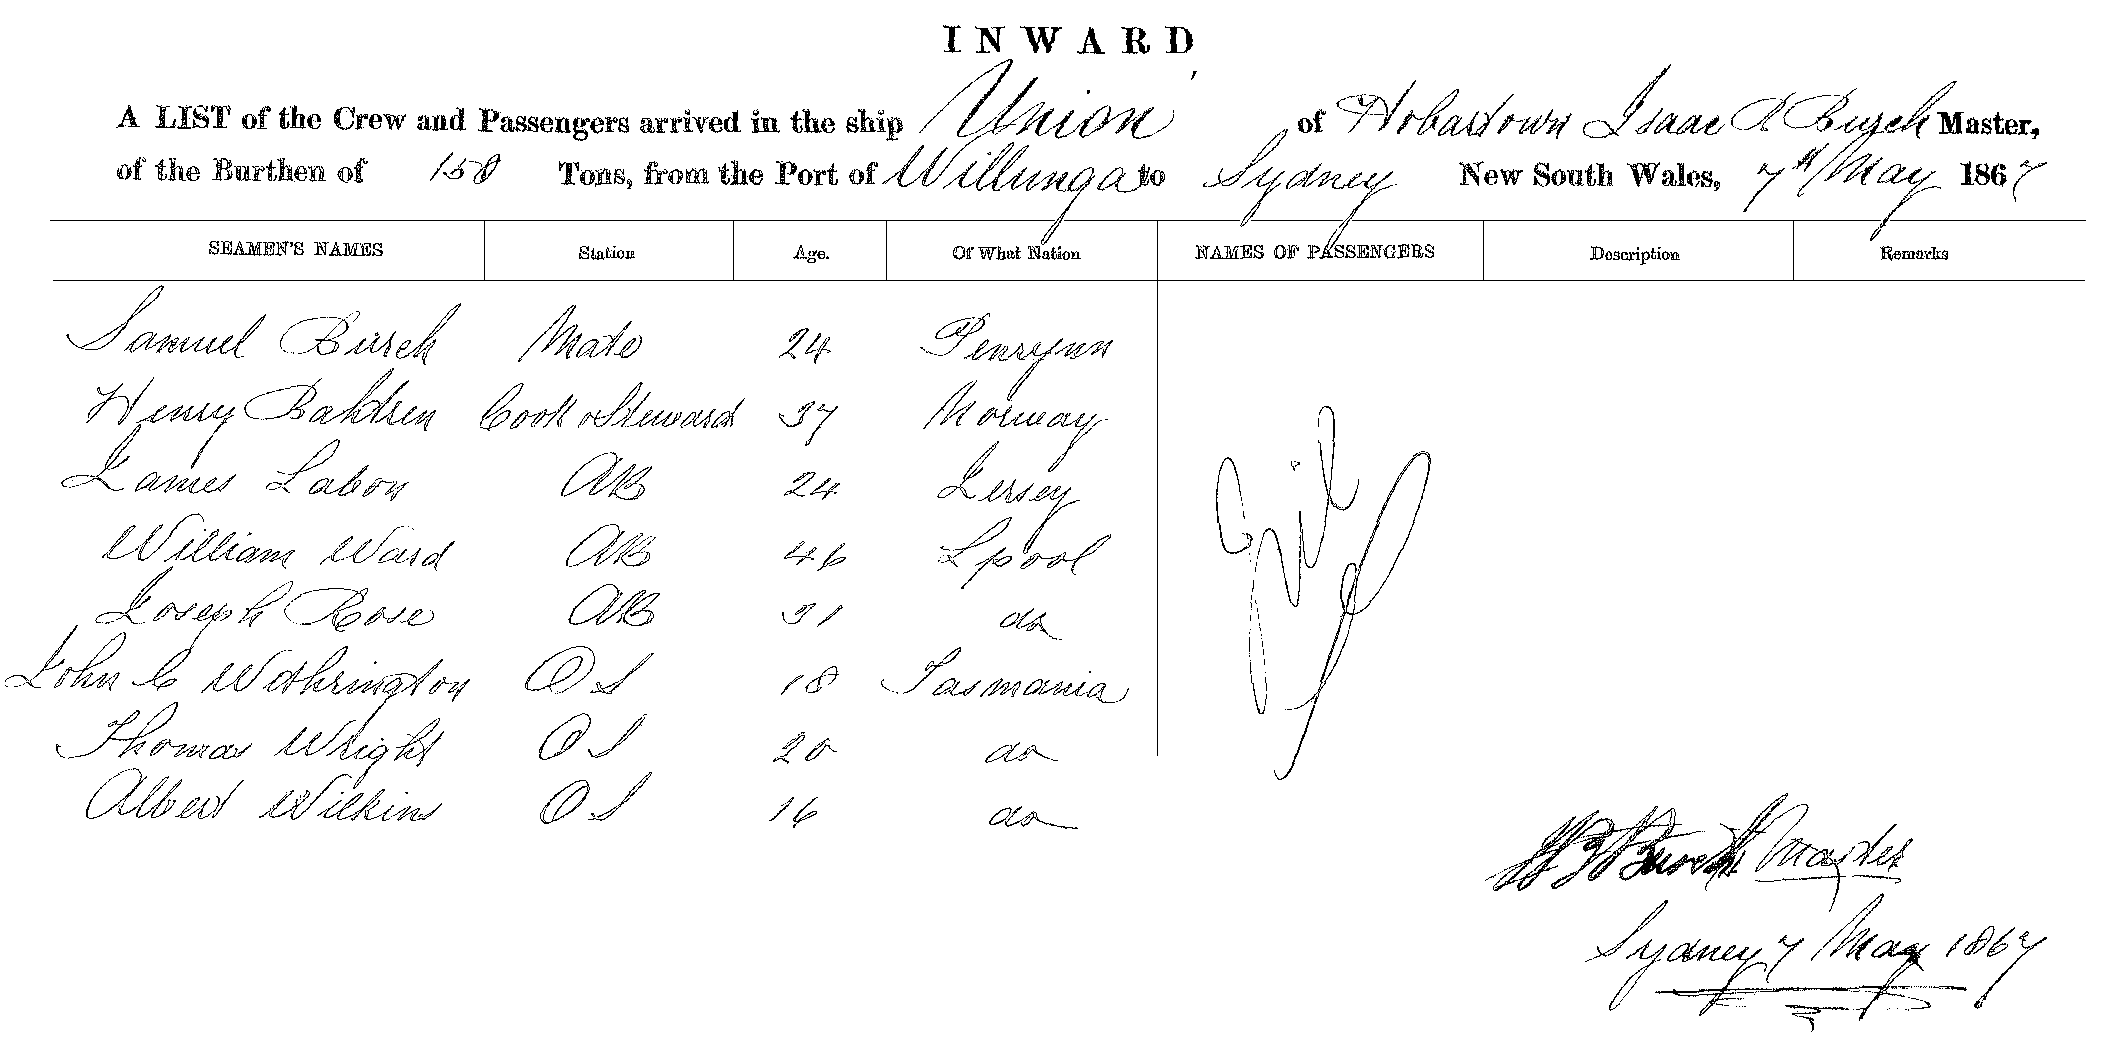 INWARD
A LIST of the Crew and Passengers arrived in the ship Union of Hobartown Isaac R Burch Master,
of the Burthen of 150 Tons, from the Port of Willunga to Sydney New South Wales, 7th May 1867
SEAMEN'S NAMES Station Age. Of What Nation NAMES OF PASSENGERS Description Remarks
Samuel Burch Mate 24 Penrynn
Henry Bahtren Cook & Steward 37 Norway
James Labon AB 24 Jersey
William Ward AB 46 Lpool
Joseph Rose AB 31 do
John C Wothrington OS 18 Tasmania
Thomas Wright OS 20 do
Albert Wilkins OS 16 do
Nil
Burch Master
Sydney 7 May 1867